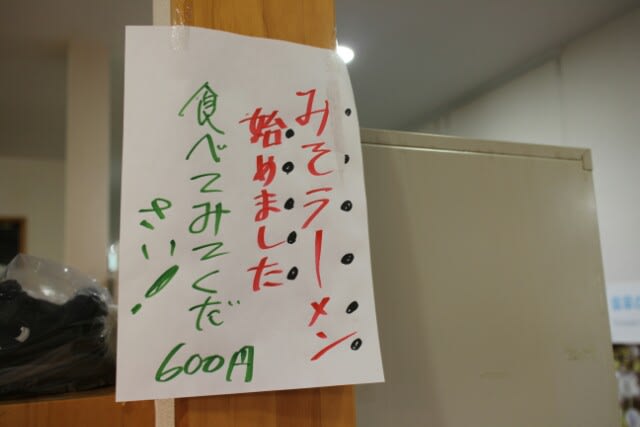 みそラーメン
始めました
食べてみてくだ
さい!
600円